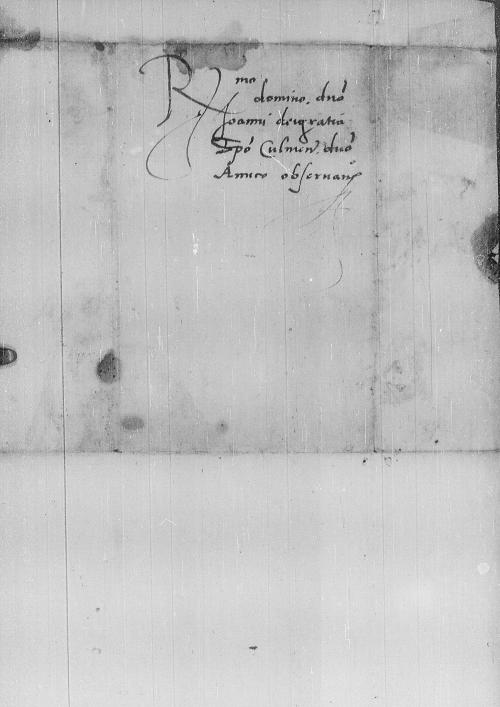 Rmo
domino, dno
Joanni dei gratia
Epo Culmen. dno
Amico obseruan